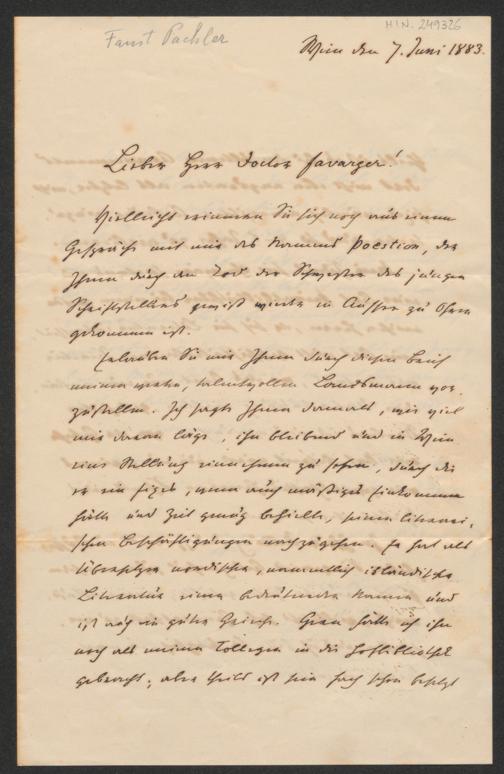 H.I.N. 249326
Faust Pachler
Wien den 7. Juni 1883.
Lieber Herr Doctor Favarger!
Vielleicht erinnern Sie sich noch aus einem
Gespräche mit mir des Namens Poestion, der
Ihnen durch den Tod der Schwester des jungen
Schriftstellers gewiß wieder in Aussee zu Ohren
gekommen ist.
Erlauben Sie mir Ihnen durch diesen Brief
meinen werten, talentvollen Landsmann vor-
zustellen. Ich sagte Ihnen damals, wie viel
mir daran läge, ihn bleibend und in Wien
eine Stellung einnehmen zu sehen, durch die
er ein fixes, wenn auch mäßiges Einkommen
hätte und Zeit genug behielte, seinen literari-
schen Beschäftigungen nachzugehen. Er hat als
Übersetzer nordischer, namentlich isländischer
Literatur einen bedeutenden Namen und
ist auch ein guter Grieche. Gern hätte ich ihn
auch als meinen Collegen in die Hofbibliothek
gebracht; aber theils ist sein Fach schon besetzt